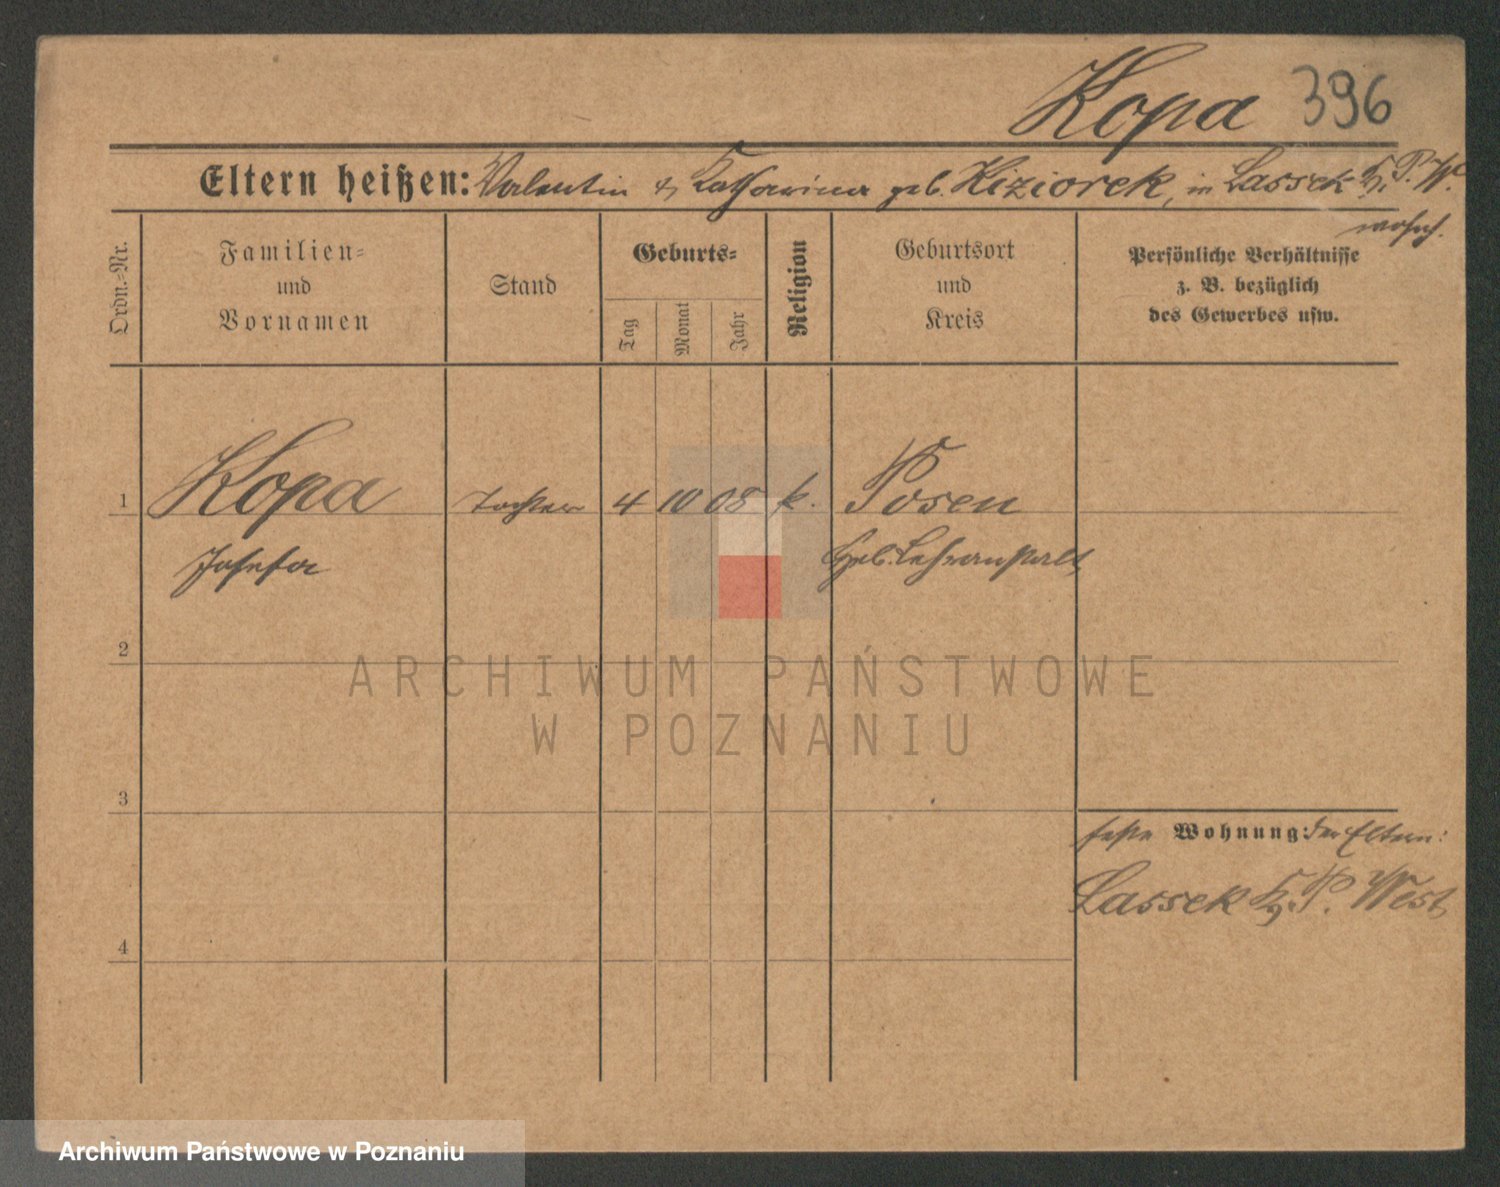 Kopa 396
Eltern heißen: Valentin & Katharina geb. Kiziorek, in Lassek K. P. W.
wohnh.
Ordn.-Nr.
Familien- und Vornamen
Stand
Geburts-
Tag
Monat
Jahr
Religion
Geburtsort und Kreis
Persönliche Verhältnisse
z. B. bezüglich
des Gewerbes usw.
1 Kopa Tochter 4 10 08 k. Posen
Josefa Heb. Lehranstalt
2
ARCHIWUM PAŃSTWOWE
W POZNANIU
3
feste Wohnung: der Eltern:
Lassek K. P. West
4
Archiwum Państwowe w Poznaniu